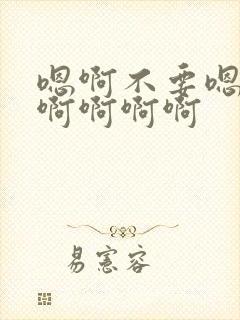 嗯啊不要嗯
啊啊啊啊
易宪容